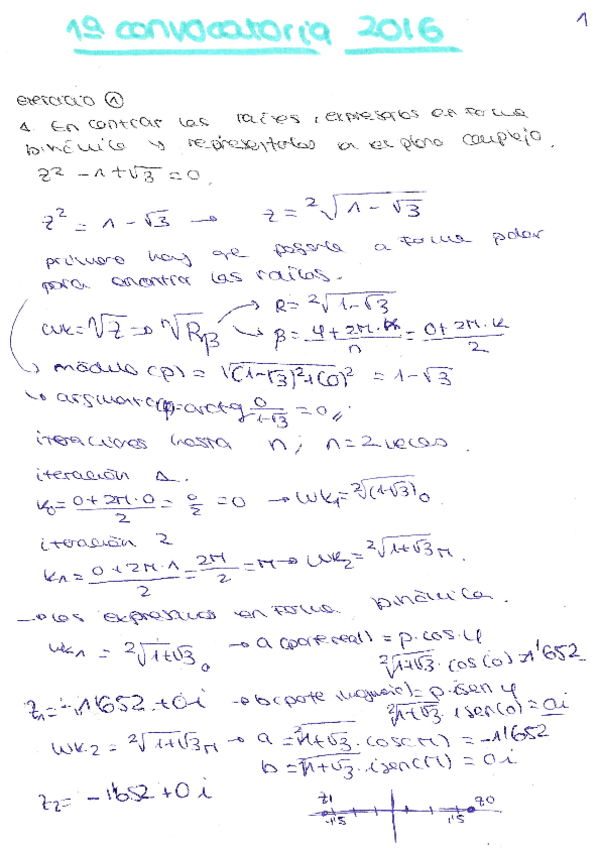 1ª convocatoria 2016
1
ejercicio ①
1. Encontrar las raíces, expresarlas en forma
binómica y representarlas en el plano complejo.
z² - 1 + √3 = 0.
z² = 1 - √3 → z = ²√1 - √3
primero hay que pasarla a forma polar
para encontrar las raíces.
R = ²√1-√3
wk = ⁿ√z => ⁿ√R β → β = φ + 2π·k / n = 0 + 2π·k / 2
módulo (ρ) = √(1-√3)² + (0)² = 1-√3
argumento φ = arctg 0/1-√3 = 0
iteraciones hasta n; n = 2 veces.
iteración 1.
k₀ = 0 + 2π·0 / 2 = 0/2 = 0 → wk₁ = ²√(1+√3) 0
iteración 2
k₁ = 0 + 2π·1 / 2 = 2π/2 = π → wk₂ = ²√1+√3 π.
→ las expresamos en forma binómica.
wk₁ = ²√1+√3 0 → a (parte real) = ρ·cos·φ
²√1+√3 · cos(0) = 1'652
z₁ = 1'652 + 0i → b (parte imaginaria) = ρ·i sen φ
²√1+√3 · i sen(0) = 0i
wk₂ = ²√1+√3 π → a = ²√1+√3 · cos(π) = -1'652
b = ²√1+√3 · i sen(π) = 0i
z₂ = -1'652 + 0i
z1 z0
-1'5 1'5